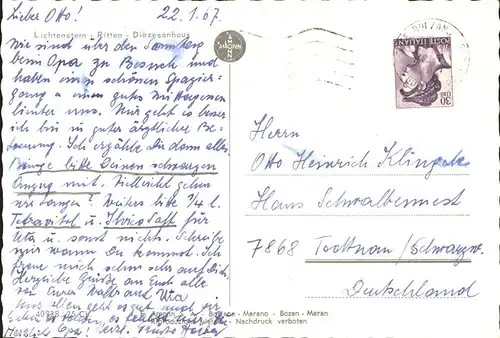 Lieber Otto! 22.1.67.
Lichtenstern - Ritten - Diözesanhaus
Wir sind über den Sonntag
beim Opa zu Besuch und
haben einen schönen Spazier-
gang u. ein gutes Mittagessen
hinter uns. Mir geht es besser
ich bin in guter ärztlicher Be-
treuung. Ich erzähle Dir dann alles.
Bringe bitte Deinen schwarzen
Anzug mit. Vielleicht gehen
wir tanzen? Weiters bitte 1/4 l.
Tetravitol u. für
Uta u. sonst nichts. Schreibe
mir wann Du kommst. Ich
freue mich schon sehr auf Dich.
Herzliche Grüße an Euch alle
von Eurer Uta
uns allen geht es gut und wir
Herzlich Opa!
AMONN
POSTE ITALIANE
30
LIRE
Herrn
Otto Heinrich Klingele
Haus Schwalbennest
7868 Todtnau/Schwarzw.
Deutschland
40938
Bolzano - Merano - Bozen - Meran
Nachdruck verboten